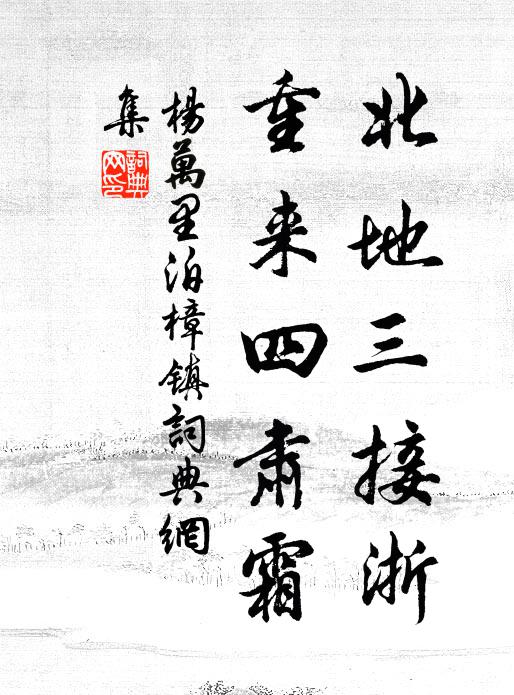 北地三接淅
重来四肃霜
楊萬里泊樟鎮詞典網
集
詞典網印